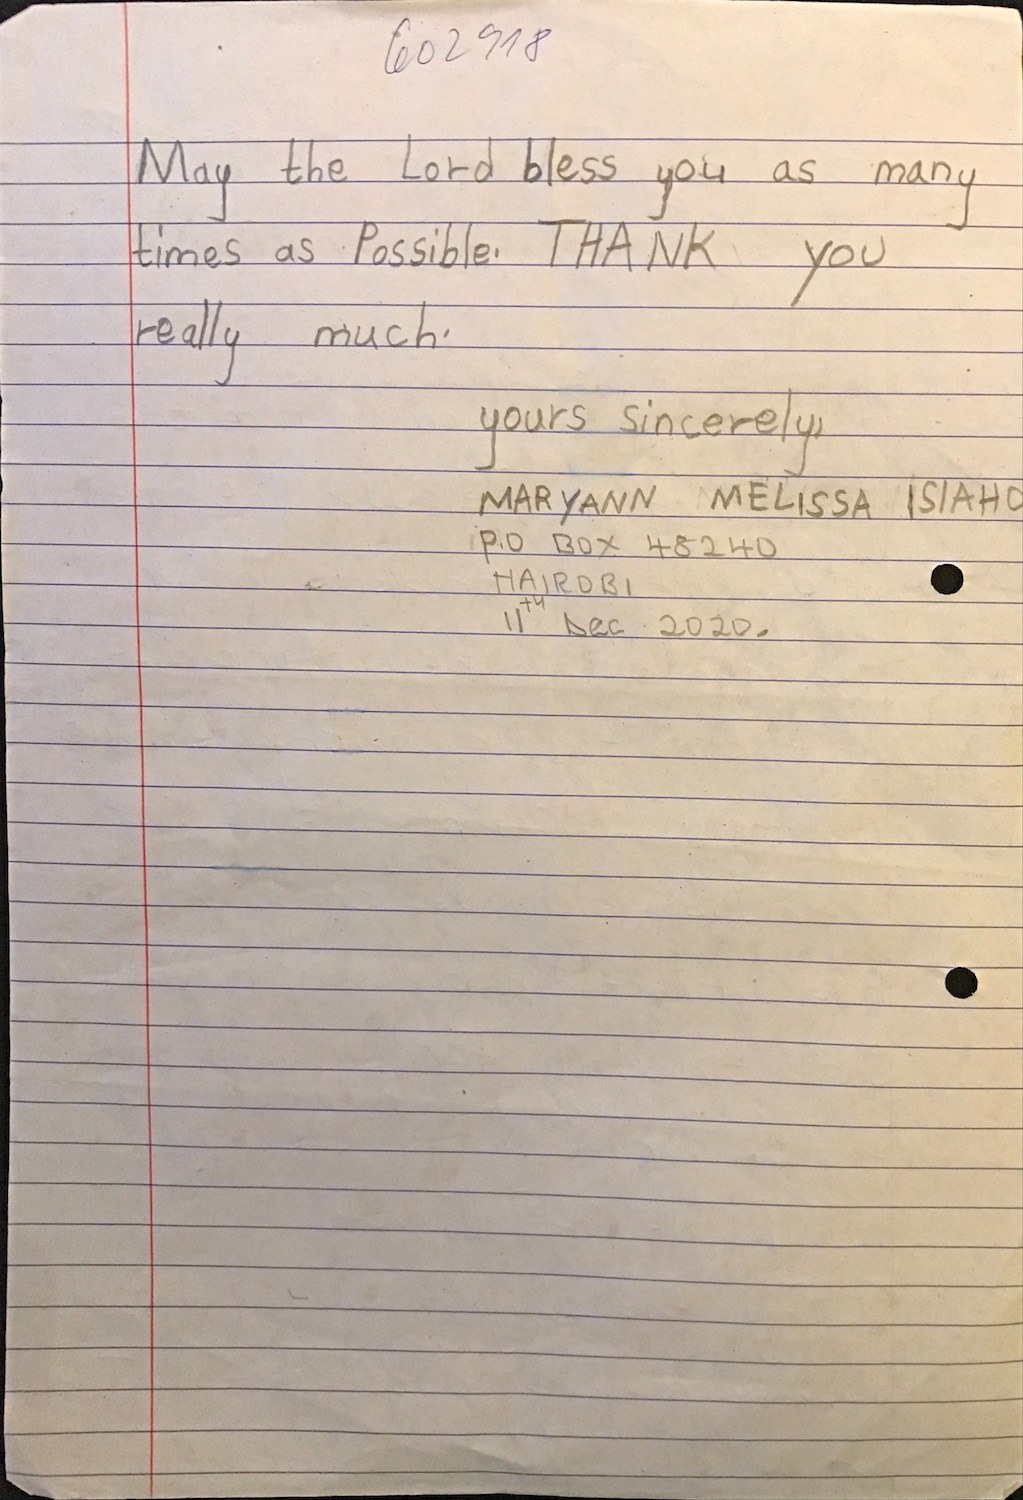 602918
May the Lord bless you as many
times as Possible. THANK you
really much.
yours sincerely,
MARYANN MELISSA ISIAHO
P.O BOX 48240
NAIROBI
11th Dec 2020.